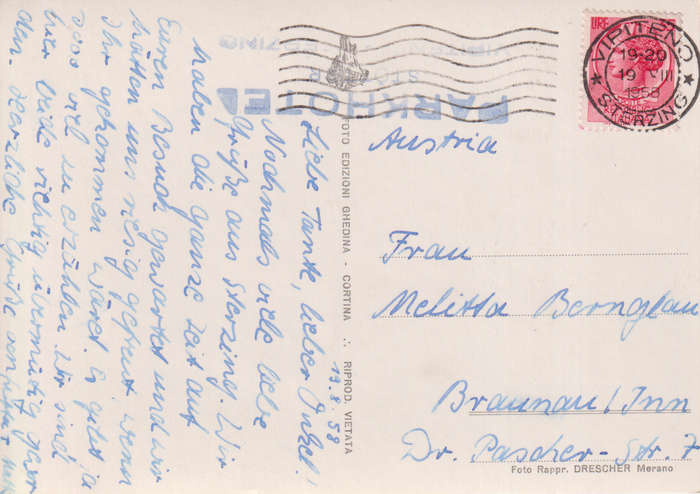 19.8.58
Liebe Tante, lieber Onkel!
Nochmals viele liebe
Grüße aus Sterzing. Wir
haben die ganze Zeit auf
Euren Besuch gewartet und wir
hätten uns riesig gefreut wenn
Ihr gekommen wäret. Es gibt ja
sooo viel zu erzählen. Wir sind
hier beide richtig übermütig gewor
den. Herzliche Grüße von
FOTO EDIZIONI GHEDINA - CORTINA ∴ RIPROD. VIETATA
PARKHOTEL
LIRE
VIPITENO
19-20
19 VIII
1958
STERZING
Austria
Frau
Melitta Bernglau
Braunau/Inn
Dr. Pascher-Str. 7
Foto Rappr. DRESCHER Merano